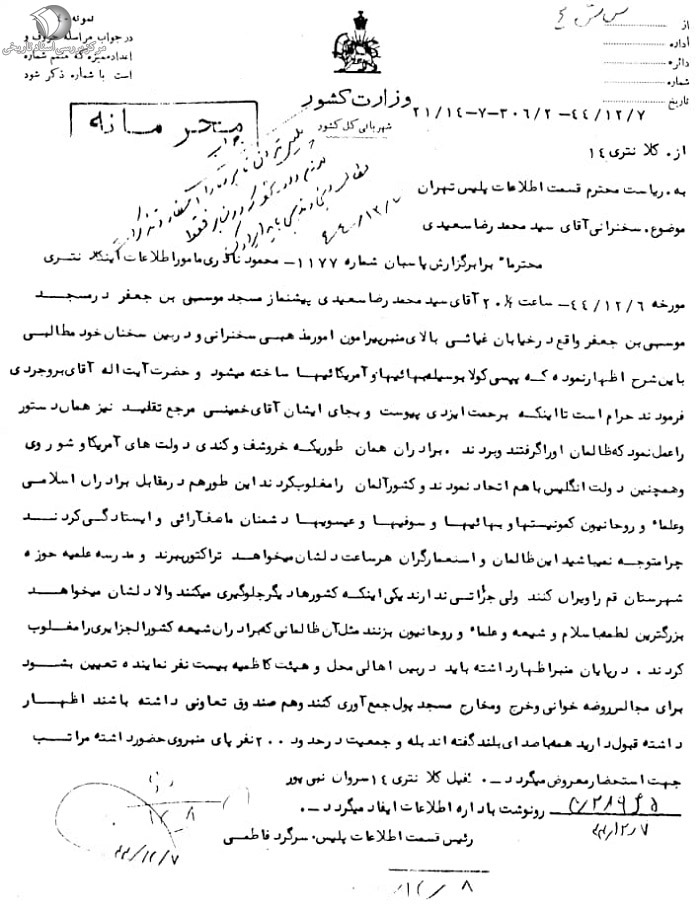 مرکز بررسی اسناد تاریخی
نمونه ۴۰
در جواب مراسله حروف و
اعداد ممیزه که ضمنم شماره
است با شماره ذکر شود
از
اداره
دائره
شماره
تاریخ
وزارت کشور
شهربانی کل کشور
محرمانه
۲۱/۱۴-۷-۳۰۶/۲-۴۴/۱۲/۷
از. کلانتری ۱۴
به. ریاست محترم قسمت اطلاعات پلیس تهران
موضوع. سخنرانی آقای سید محمد رضا سعیدی
محترما" برابر گزارش پاسبان شماره ۱۱۷۷- محمود نادری مامور اطلاعات این کلانتری
مورخه ۴۴/۱۲/۶- ساعت ۲۰/۵ آقای سید محمد رضا سعیدی پیشنماز مسجد موسی بن جعفر در مسجد
موسی بن جعفر واقع در خیابان غیاثی بالای منبر پیرامون امور مذهبی سخنرانی و در بین سخنان خود مطالبی
باین شرح اظهار نموده که پپسی کولا بوسیله بهائیها و آمریکائیها ساخته میشود و حضرت آیت اله آقای بروجردی
فرمودند حرام است تا اینکه برحمت ایزدی پیوست و بجای ایشان آقای خمینی مرجع تقلید نیز همان دستور
را عمل نمود که ظالمان او را گرفتند و بردند . برادران همان طوریکه خروشف و کندی دولت های آمریکا و شوروی
و همچنین دولت انگلیس با هم اتحاد نمودند و کشور آلمان را مغلوب کردند این طور هم در مقابل برادران اسلامی
و علماء و روحانیون کمونیستها و بهائیها و سوفیها و عیسویها دشمنان ما صف آرائی و ایستادگی کردند
چرا متوجه نمیباشید این ظالمان و استعمارگران هر ساعت دلشان میخواهد تراکتور ببرند و مدرسه علمیه حوزه
شهرستان قم را ویران کنند ولی جرأتی ندارند یکی اینکه کشورهای دیگر جلوگیری میکنند والا دلشان میخواهد
بزرگترین لطمه باسلام و شیعه و علماء و روحانیون بزنند مثل آن ظالمانی که برادران شیعه کشور الجزایری را مغلوب
کردند . در پایان منبر اظهار داشته باید در بین اهالی محل و هیئت کاظمیه بیست نفر نماینده تعیین بشود
برای مجالس روضه خوانی و خرج و مخارج مسجد پول جمع آوری کنند و هم صندوق تعاونی داشته باشند اظهار
داشته قبول دارید همه با صدای بلند گفته اند بله و جمعیت در حدود ۲۰۰ نفر پای منبر وی حضور داشته مراتب
جهت استحضار معروض میگردد —. کفیل کلانتری ۱۴ سروان نبی پور
رونوشت باداره اطلاعات ایفاد میگردد —.
۴۴/۱۲/۷
رئیس قسمت اطلاعات پلیس. سرگرد فاطمی
۴۴/۱۲/۷